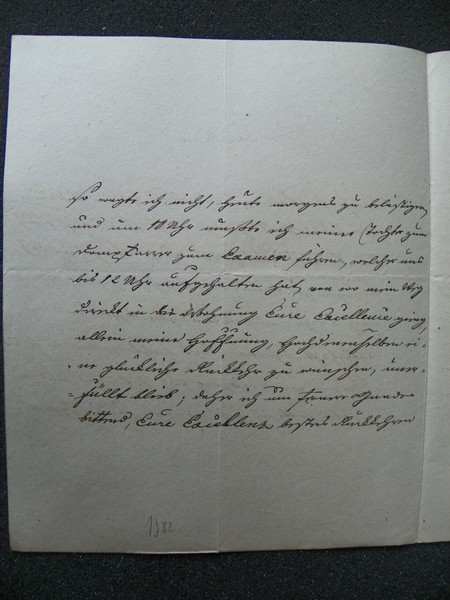 so wagte ich nicht, heute morgens zu belästigen
und um 10 Uhr mußte ich meine Tochter zum
Dompfarrer zum Examen führen, welcher uns
bis 12 Uhr aufgehalten hat, von wo mein Weg
direkt in die Wohnung Eure Excellenz ging,
allein meine Hoffnung, Hochdemselben ei-
ne glückliche Rückkehr zu wünschen, uner-
füllt blieb; daher ich um Gnade
bittend, Eure Excellenz bestes